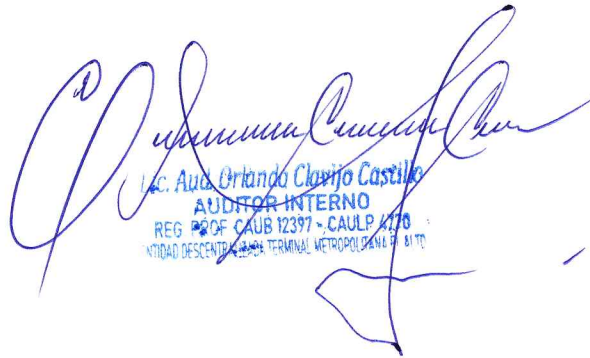 Lic. Aud. Orlando Clavijo Castillo
AUDITOR INTERNO
REG PROF CAUB 12397 - CAULP 4770
ENTIDAD DESCENTRALIZADA TERMINAL METROPOLITANA EL ALTO